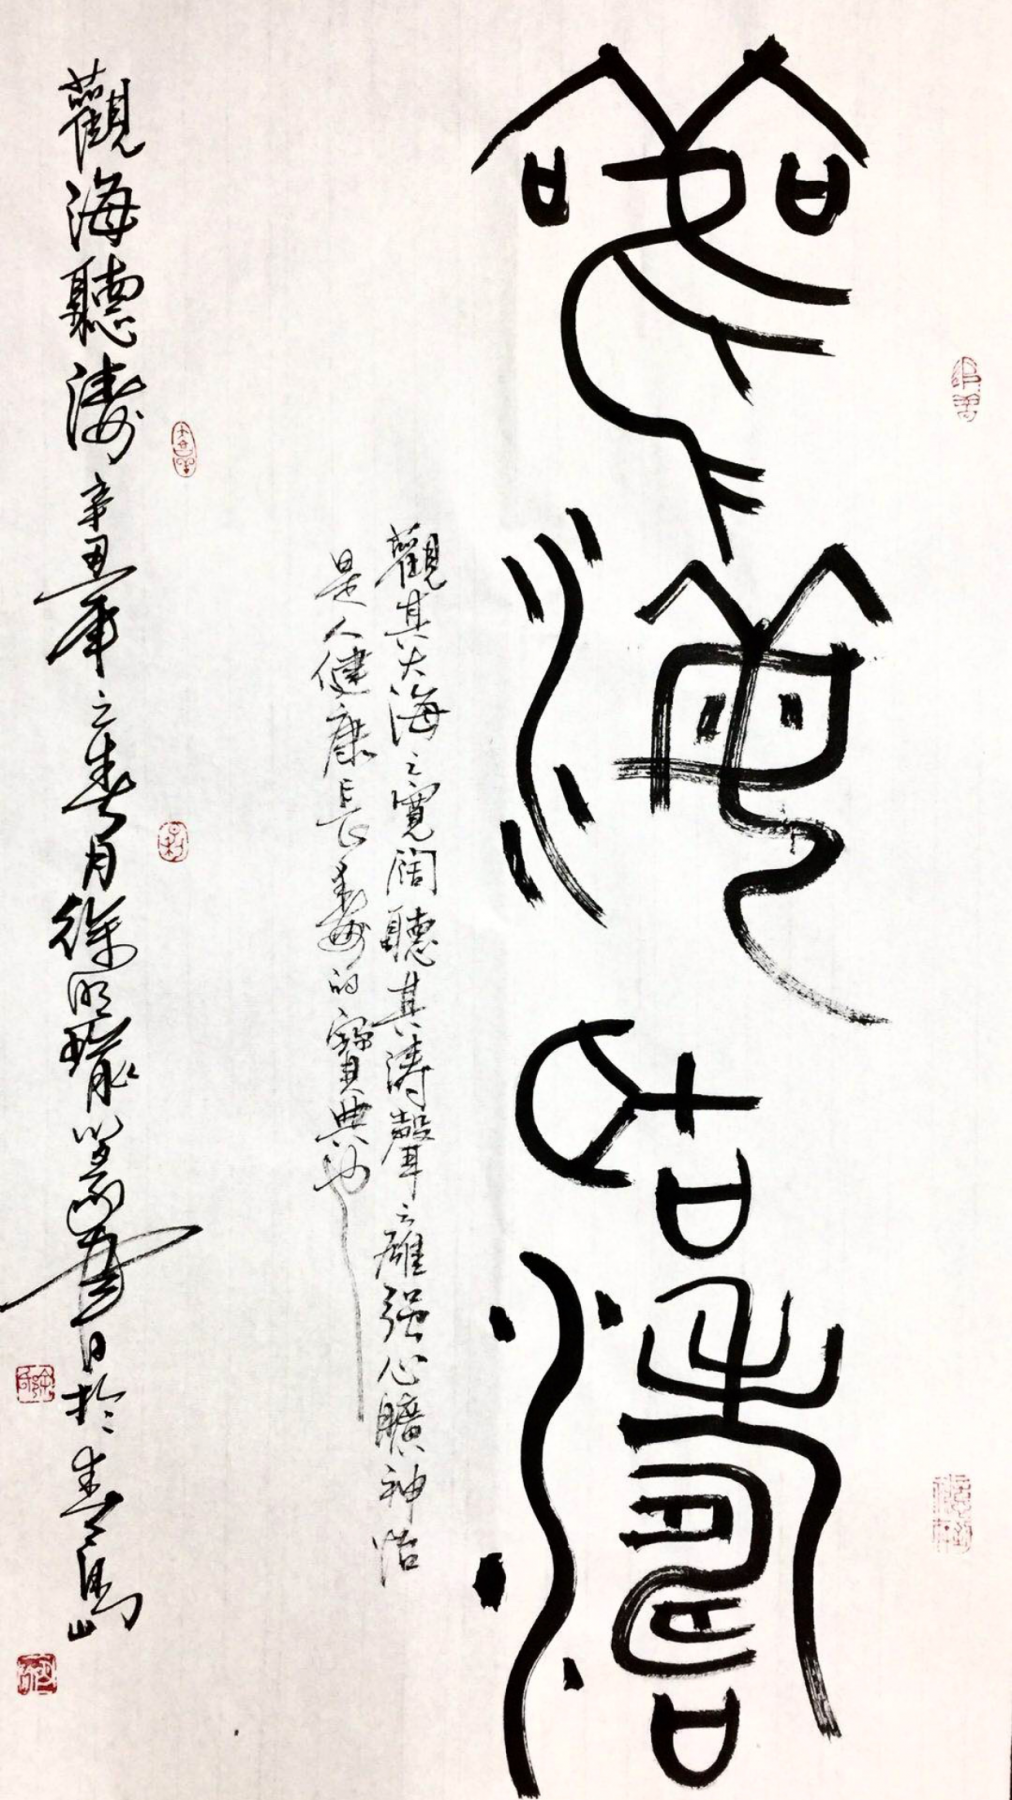 觀海聽濤
觀其大海之寬闊聽其濤聲之雄强心曠神怡
是人健康長壽的寶典也
觀海聽濤辛丑年之春月徐 書於青島